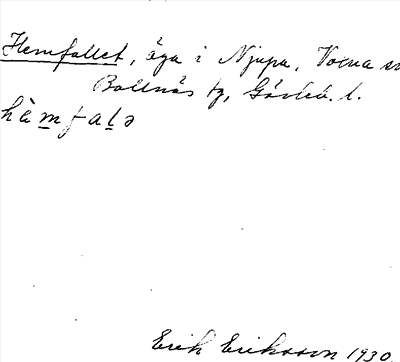 Hemfallet, äga i Njupa, Voxna sn
Bollnäs tg, Gävleb. l.
hèmfalə
Erik Eriksson 1930